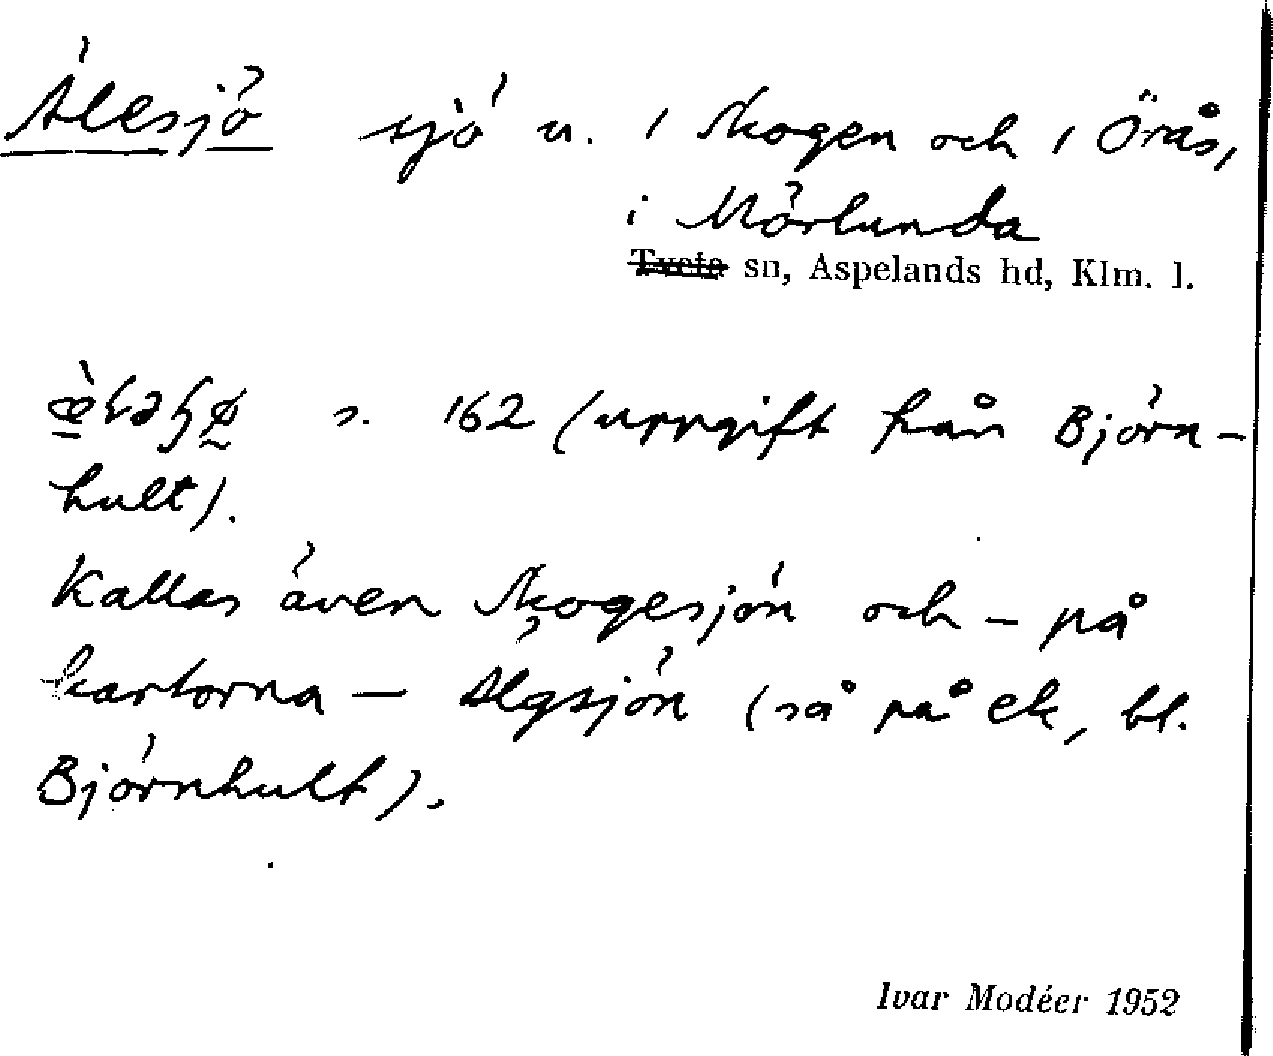 Älesjö sjö n. i Skogen och i Örås,
i Mörlunda
Tveta sn, Aspelands hd, Klm. l.
s. 162 (uppgift från Björn-
hult).
Kallas även Skogesjön och – på
kartorna – Älgsjön (så på ek, bl.
Björnhult).
Ivar Modéer 1952